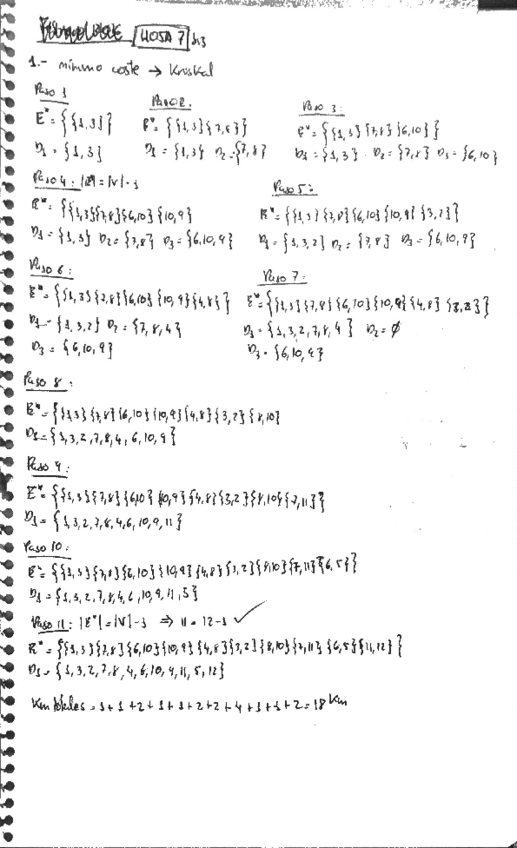 HOJA 7
1.- mínimo coste → Kruskal
Paso 1
Paso 2:
Paso 3:
E*={{1,3}}
E*={{1,3}{7,8}}
E*={{1,3}{7,8}{6,10}}
D1={1,3}
D1={1,3} D2={7,8}
D1={1,3} D2={7,8} D3={6,10}
Paso 4: |E*|=|V|-1
Paso 5:
E*={{1,3}{7,8}{6,10}{10,9}
E*={{1,3}{7,8}{6,10}{10,9}{3,2}}
D1={1,3} D2={7,8} D3={6,10,9}
D1={1,3,2} D2={7,8} D3={6,10,9}
Paso 6:
Paso 7:
E*={{1,3}{7,8}{6,10}{10,9}{4,8}}
E*={{1,3}{7,8}{6,10}{10,9}{4,8}{8,2}}
D1={1,3,2} D2={7,8,4}
D1={1,3,2,7,8,4} D2=∅
D3={6,10,9}
D3={6,10,9}
Paso 8:
E*={{1,3}{7,8}{6,10}{10,9}{4,8}{3,2}{8,10}
D1={1,3,2,7,8,4,6,10,9}
Paso 9:
E*={{1,3}{7,8}{6,10}{10,9}{4,8}{3,2}{8,10}{7,11}}
D1={1,3,2,7,8,4,6,10,9,11}
Paso 10:
E*={{1,3}{7,8}{6,10}{10,9}{4,8}{3,2}{8,10}{7,11}{6,5}}
D1={1,3,2,7,8,4,6,10,9,11,5}
Paso 11: |E*|=|V|-1 ⇒ 11=12-1 ✓
E*={{1,3}{7,8}{6,10}{10,9}{4,8}{3,2}{8,10}{7,11}{6,5}{11,12}}
D1={1,3,2,7,8,4,6,10,9,11,5,12}
Km totales=1+1+2+1+1+2+2+4+1+1+2=18 Km